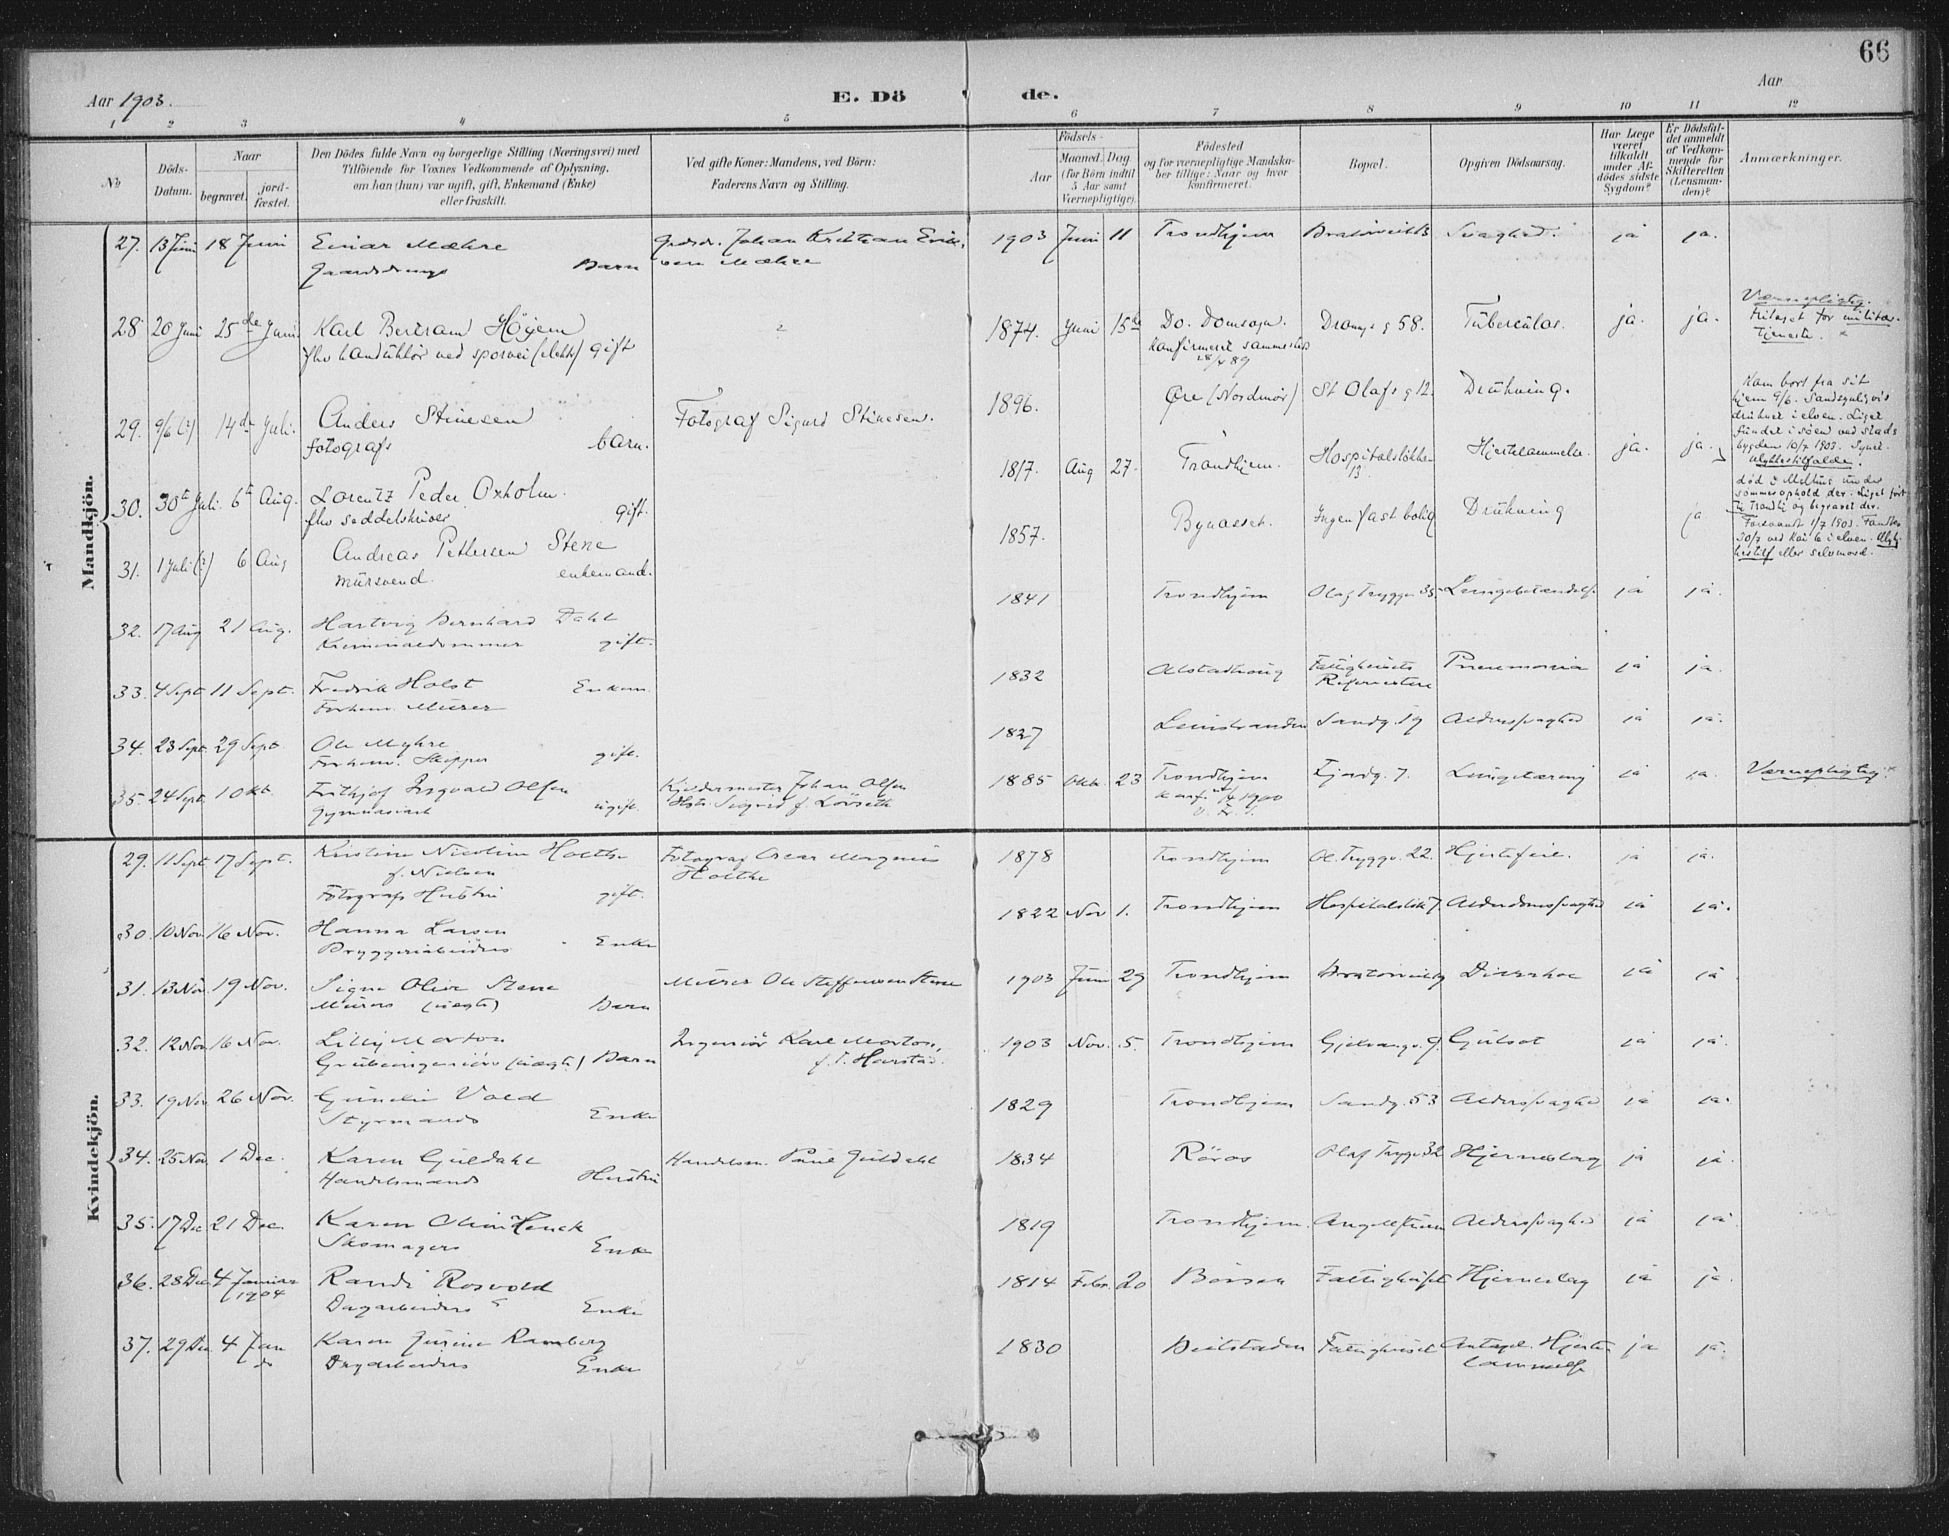 66
Aar 1903.
E. Dö de.
Aar
1 2 3 4 5 6 7 8 9 10 11 12
No
Döds-Datum.
Naar
begravet.
jord-fæstet.
Den Dödes fulde Navn og borgerlige Stilling (Næringsvei) med
Tilföiende for Voxnes Vedkommende af Oplysning,
om han (hun) var ugift, gift, Enkemand (Enke)
eller fraskilt.
Ved gifte Koner: Mandens, ved Börn:
Faderens Navn og Stilling.
Födsels-
Aar
Maaned. Dag
(for Börn indtil
5 Aar samt
Værnepligtige).
Födested
og for værnepligtige Mandska-
ber tillige: Naar og hvor
konfirmeret.
Bopæl.
Opgiven Dödsaarsag.
Har Læge
været
tilkaldt
under Af-
dödes sidste
Sygdom?
Er Dödsfal-
det anmeldt
af Vedkom-
mende for
Skifteretten
(Lensman-
den)?
Anmærkninger.
Mandkjön.
27. 13 Juni 18 Juni Einar Mæhre 1903 Juni 11 Trondhjem Svaghed. ja ja.
Gaardsdrengs Barn Mæhre
28 20 Juni 25de Juni. Karl Bertram Höyem 1874. Juni 15de Do. Domsogn. Drongs g 58. Tuberculos. ja. ja. Værnepligtig.
fhv konduktör ved sporvei (elektr) gift konfirmeret sammesteds Fritaget for militær-
tjeneste.
29. 9/6 (?) 14de Juli. Anders Stinesen Fotograf Sigurd Stinesen. 1896. Øre (Nordmör) St Olafs g 12. Drukning. Kom bort fra sit
fotografs barn. hjem 9/6. Sandsynligvis
druknet i elven. Liget
fundet i söen ved Stads
bygden 10/7 1903.
Ulykkestilfælde.
30. 30te Juli 6te Aug. Lorentz Peder Oxholm. 1817. Aug 27. Trondhjem. Hospitalslökke 13. Hjertelammelse. ja. ja. död i Melhus under
fhv seddelskriver gift. sommerophold der. Liget fört
til Trondhj og begravet der.
31. 1 Juli (?) 6 Aug Andreas Pettersen Stene 1857. Bynesset. Ingen fast bolig Drukning ja Forsvandt 1/7 1903. Fandtes
mursvend. enkemand. 30/7 ved Kai 6 i elven.
eller selvmord.
32. 17 Aug 21 Aug. Hartvig Bernhard Dahl 1841 Trondhjem Olaf Trygg. 35. Lungebetændelse ja ja.
gift.
33. 4 Sept 11 Sept. Fredrik Holst Enkem. 1832 Alstadhaug Fattighusets Pneumonia ja ja.
Forhenv. Murer
34. 23 Sept. 29 Sept. Ole Myhre 1827 Leinstranden Sandg. 19 Alderssvaghed ja ja.
Forhenv. Skipper gift.
35. 24 Sept. 1 Okt. Frithjof Ingvald Olsen Kjeldermester Johan Olsen 1885 Okt. 23 Trondhjem Fjordg. 7. Lungetæring ja ja. Værnepligtig.
Gymnasiast ugift. Hstr. Sigrid f. Lövseth Konf. 1900
Kvindekjön.
29. 11 Sept 17 Sept. Kristine Nicoline Holthe Fotograf Oscar Magnus 1878 Trondhjem Ol. Tryggv. 22. Hjertefeil. ja ja.
f. Nielsen Holthe
Fotografs Hustru gift.
30. 10 Nov. 16 Nov. Hanna Larsen 1822 Nov 1. Trondhjem Hospitalslök 7. Alderdomssvaghed ja ja.
Bryggeriarbeiders Enke
31. 13 Nov. 19 Nov. Signe Olive Stene Murer Ole Steffensen Stene 1903 Juni 29 Trondhjem Diarrhoe ja ja
Murers (uægte) Barn
32. 12 Nov 16 Nov. Lilly Morton Ingeniör Karl Morton, 1903 Nov. 5. Trondhjem Gulsot ja ja.
Grubeingeniörs (uægte) Barn f. T. Harstad.
33. 19 Nov 26 Nov. Vold 1829 Trondhjem Sandg. 53 Alderssvaghed ja ja.
Styrmands Enke
34. 25 Nov. 1 Dec. Karen Guldahl Handelsm. Paul Guldahl 1834 Röros Olaf Trygv. 32 Hjerneslag ja ja.
Handelsmands Hustru
35. 17 Dec 21 Dec. Karen Oline Henck 1819 Trondhjem Alderssvaghed ja ja
Skomagers Enke
36. 28 Dec 4 Januar Randi Rosvold 1814 Febr. 20 Börsen Fattighuset Hjerneslag ja ja.
1904 Dagarbeiders Enke
37. 29 Dec 4 Jan Karen Jusine Ramberg 1830 Beitstaden Fattighuset Antagel. Hjerte- ja ja.
do Dagarbeiders Enke lammelse